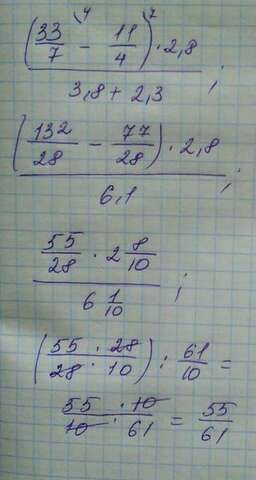 (33/7 ⁴ - 11/4 ⁷) · 2,8
3,8 + 2,3 ;
(132/28 - 77/28) · 2,8
6,1 ;
55/28 · 2 8/10
6 1/10 ;
(55 · 28 / 28 · 10) : 61/10 =
55 · 10 / 10 · 61 = 55/61